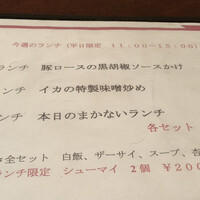 今週のランチ (平日限定 11:00~15:00)
ランチ 豚ロースの黒胡椒ソースかけ
ンチ イカの特製味噌炒め
ンチ 本日のまかないランチ
各セット
全セット 白飯、ザーサイ、スープ、杏
ランチ限定 シューマイ 2個 ¥200